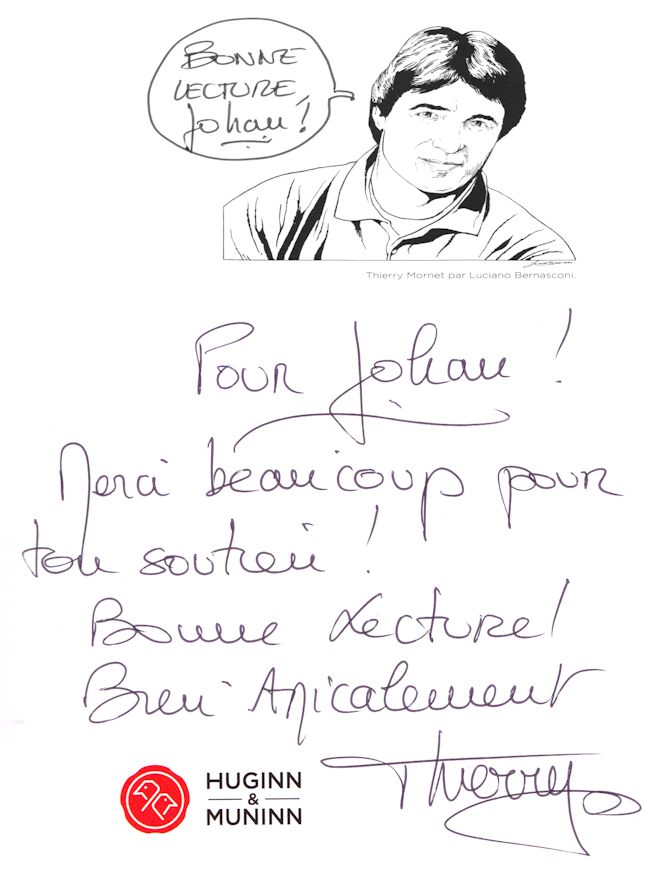 BONNE
LECTURE,
Johan !
Thierry Mornet par Luciano Bernasconi.
Pour Johan !
Merci beaucoup pour
ton soutien !
Bonne Lecture !
Bien Amicalement
Thierry
HUGINN
&
MUNINN